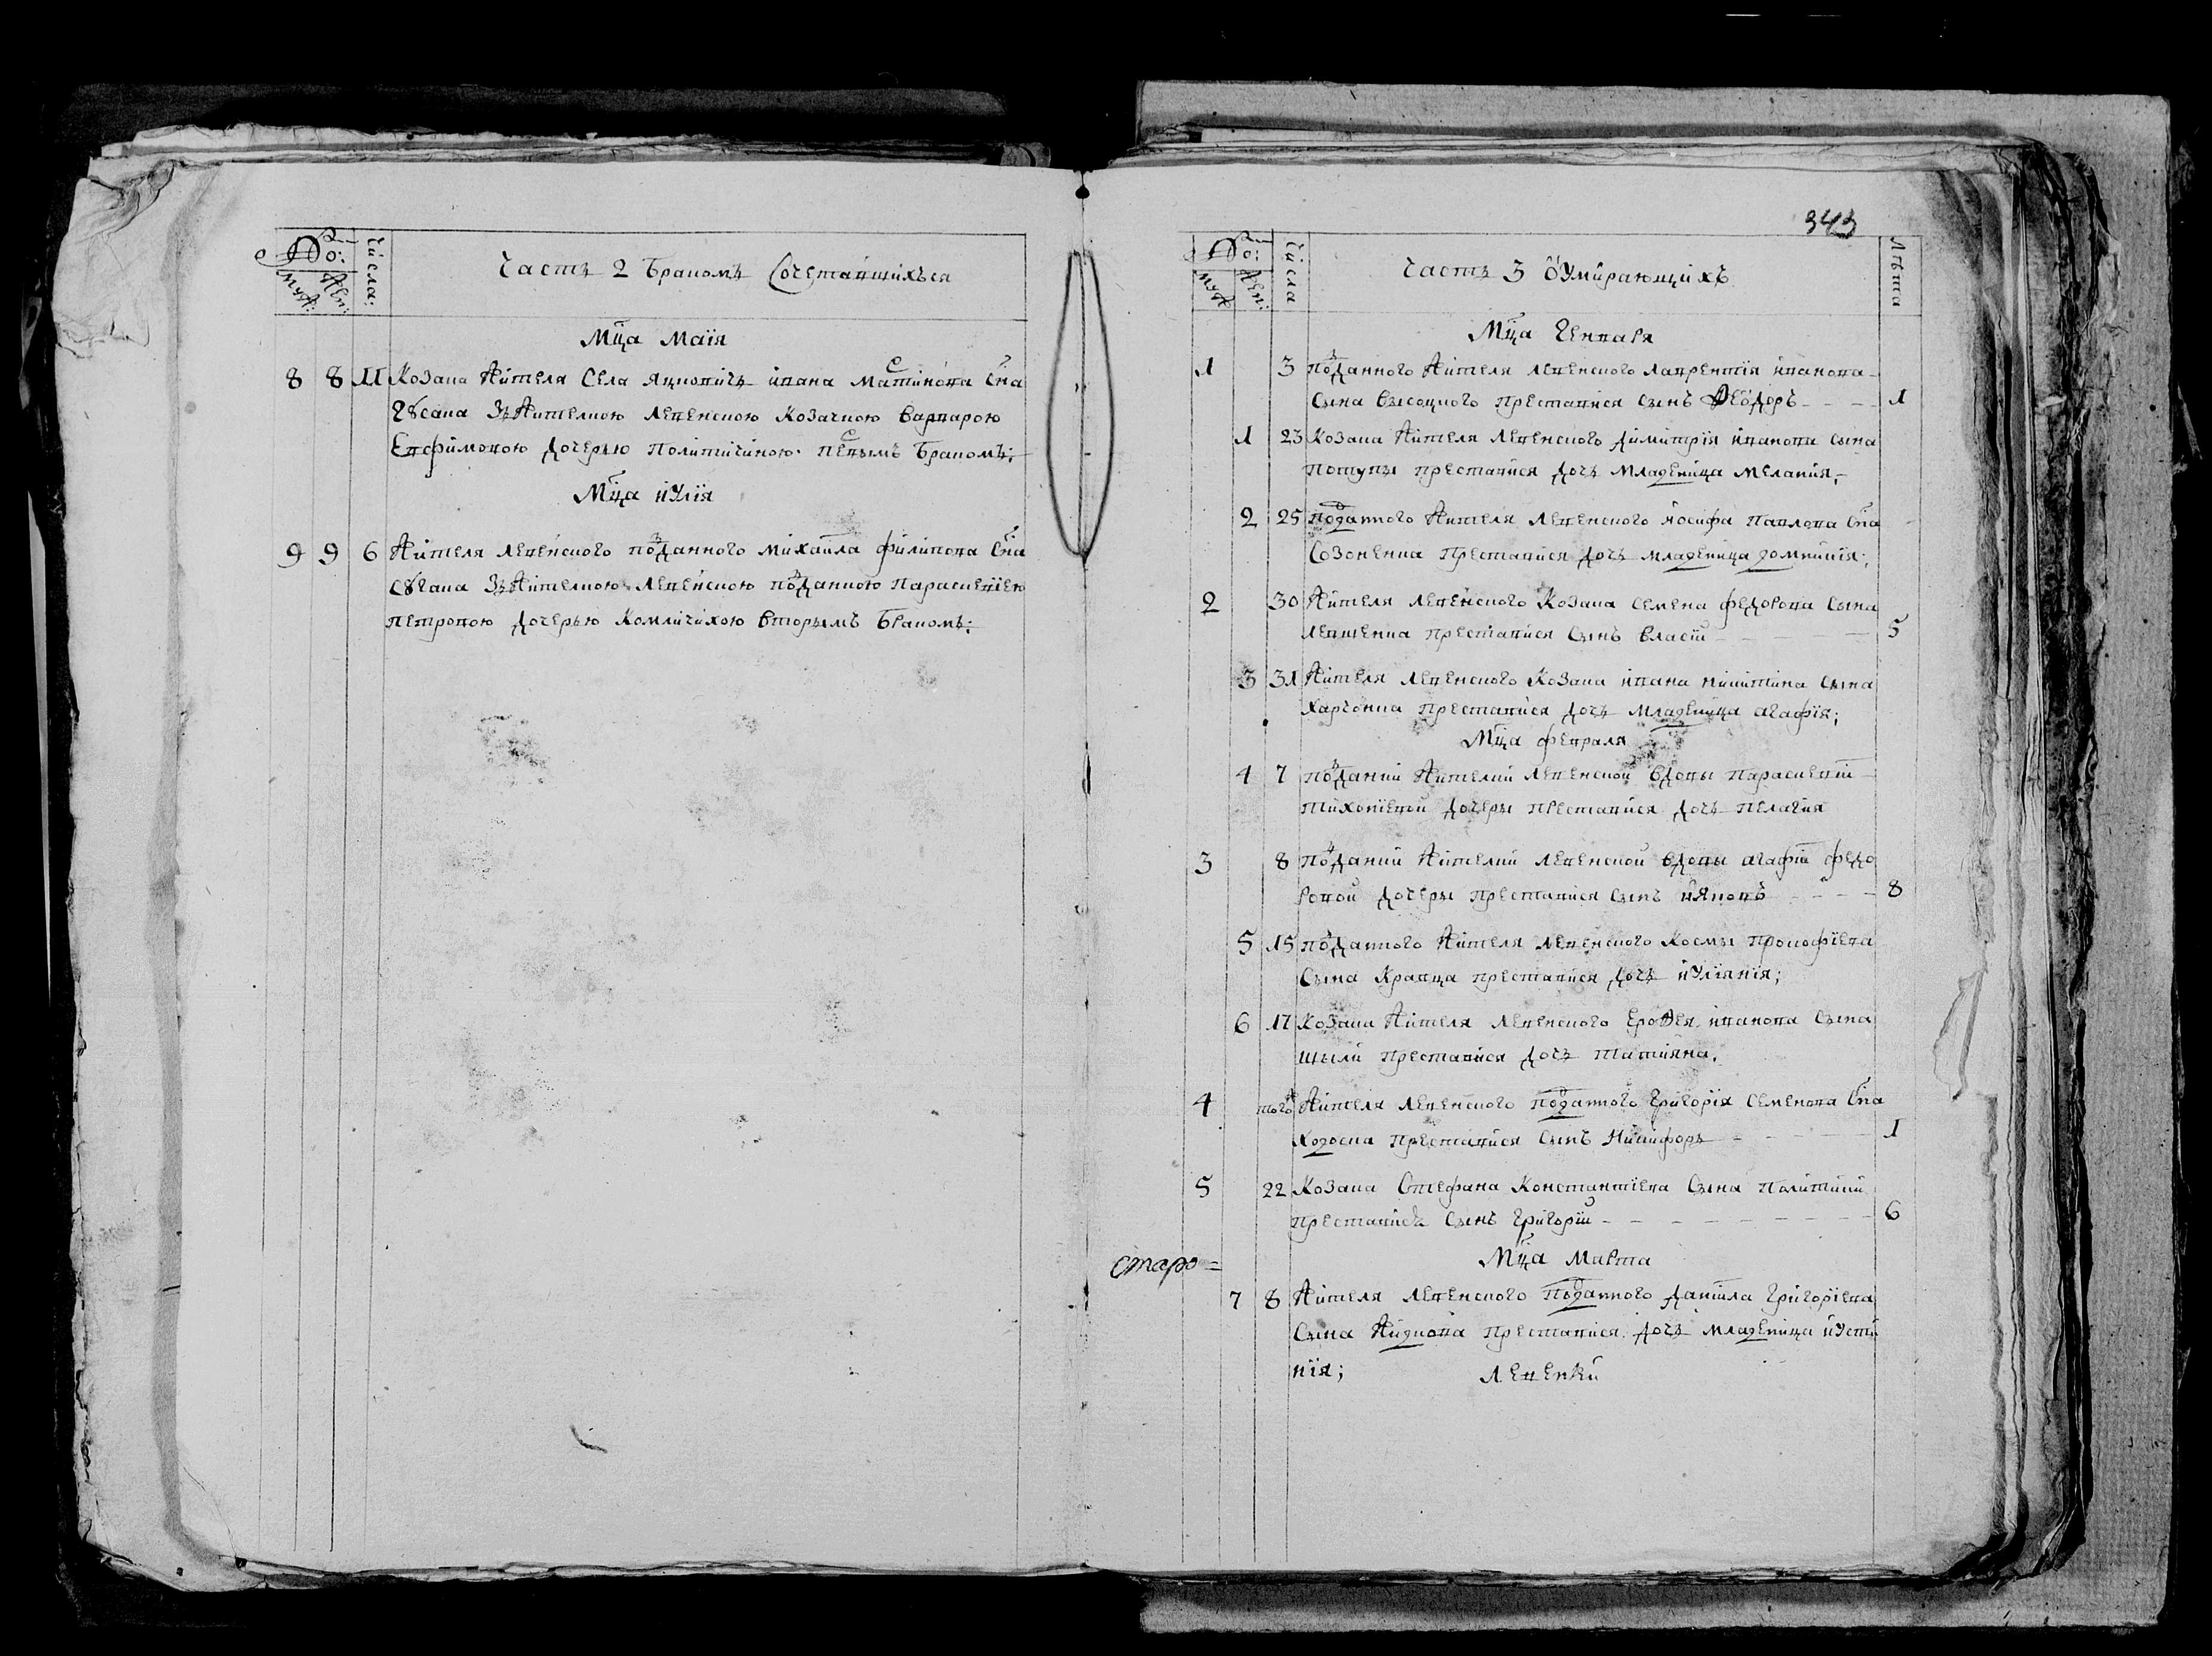 Число:
Часть 2 Бракомъ Сочетавшихъся
Мца Маїя
8 8 11 Козака Жителя Села Яцковичъ Ивана Мастикова Сна
Гусака Зъ Жителкою Левенскою Козачкою Варварою
Евфимовою Дочерью Политичиною. первымъ Бракомъ:
Мца иУлїя
9 9 6 Жителя Левенского подданного Михаила Филипова Сна
Зъ Жителкою Левенскою подданкою Параскевїею
Петровою Дочерью Комличихою Вторымъ Бракомъ:
343
Числа
Часть 3 О Умирающихъ
Лѣта
Мца Генваря
1 3 подданного Жителя Левенского Лаврентїя Иванова
Сына Высоцкого Преставися Сынъ Ѳеодоръ 1
1 23 Козака Жителя Левенского Димитрїя Иванова Сына
Потупы преставися Дочь Младеница Меланїя;
2 25 Подданного Жителя Левенского Иосифа Павлова Сна
Созоненка Преставися Дочь младеница домникїя;
2 30 Жителя Левенского Козака Семена Федорова Сына
Левшенка преставися Сынъ Власїй 5
3 31 Жителя Левенского Козака Ивана Никитина Сына
Харченка Преставися Дочь Младеница Агафїя;
Мца февраля
4 7 подданий Жителки Левенской Вдовы Параскевїи
Тихонїевой Дочеры преставися Дочь Пелагия
3 8 подданий Жителки Левенской Вдовы Агафїи Федо
ровой Дочеры Преставися Сынъ иЯковъ 8
5 15 подданного Жителя Левенского Космы Прокофїева
Сына Кравца преставися Дочь иУлїянїя;
6 17 Козака Жителя Левенского Ероѳея Иванова Сына
Шыли Преставися Дочь Татияна.
4 тогож Жителя Левенского Подданного Григорїя Семенова Сна
Ходоска Преставися Сынъ Никифоръ 1
5 22 Козака Стефана Константїева Сына Политики
Преставися Сынъ Григорїй 6
Мца Марта
Старо=
7 8 Жителя Левенского Подданного Данїила Григорїева
Сына Жидкова Преставися Дочь Младеница иУсти
нїя; Левенки